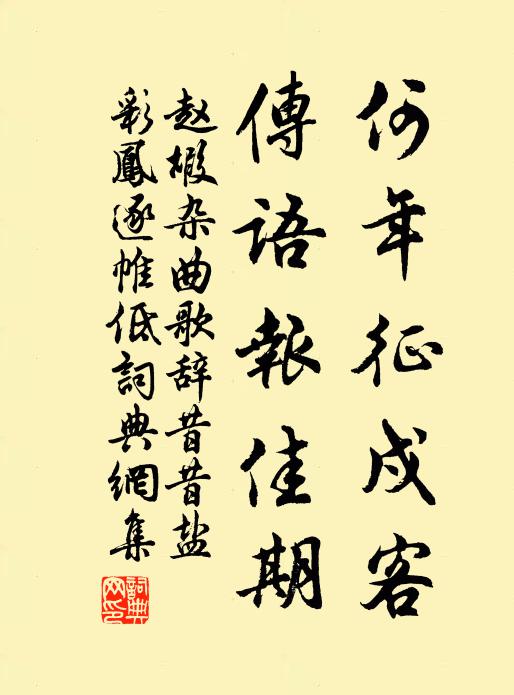 何年征戍客
傳語報佳期
赵嘏杂曲歌辞昔昔盐
彩鳳逐帷低詞典網集
詞典网印